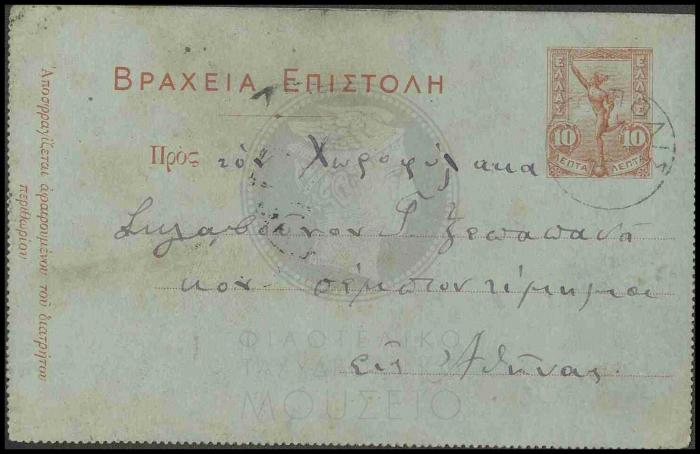 ΒΡΑΧΕΙΑ ΕΠΙΣΤΟΛΗ
ΕΛΛΑΣ ΕΛΛΑΣ
10 10
ΛΕΠΤΑ ΛΕΠΤΑ
Πρὸς τὸν Χωροφύλακα
κον πέμπτον τμῆμα
εἰς Ἀθήνας
Ἀποσφραγίζεται ἀφαιρουμένου τοῦ διατρήτου
περιθωρίου
ΦΙΛΟΤΕΛΙΚΟ
ΜΟΥΣΕΙΟ